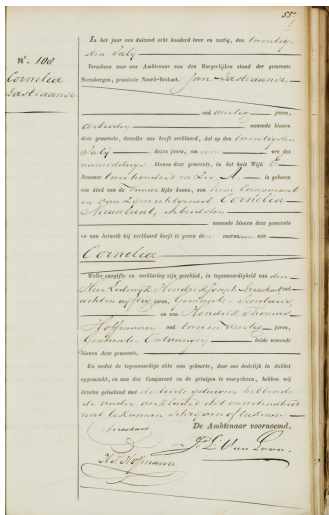 55
N°. 100
Cornelia
Bastiaanse
In het jaar een duizend acht honderd twee en zestig, den twintig-
sten July
Verscheen voor ons Ambtenaar van den Burgerlijken stand der gemeente
Steenbergen, provincie Noord-Brabant. Jan Bastiaanse
oud dertig jaren,
arbeider wonende binnen
deze gemeente, dewelke ons heeft verklaard, dat op den twintigsten
July dezes jaars, om een ure des
namiddags binnen deze gemeente, in het huis Wijk E
Nummer twee honderd en zes, A. is geboren
een kind van de Vrouwelijke kunne, van hem Comparant
en van zijne echtgenoot Cornelia
arbeidster
wonende binnen deze gemeente
en aan hetwelk hij verklaard heeft te geven den voornaam van
Cornelia
Welke aangifte en verklaring zijn geschied, in tegenwoordigheid van den
Heer Lodewijk Hendrik Joseph oud
acht en vijftig jaren, Gemeente
en van Hendrik Thomas
Hoffmann oud twee en veertig jaren,
Gemeente Ontvanger beide wonende
binnen deze gemeente.
En werdt de tegenwoordige akte van geboorte, door ons dadelijk in dubbel
opgemaakt, en aan den Comparant en de getuigen is voorgelezen, hebben wij
dezelve geteekend met de beide getuigen hebbende
de vader verklaard dat ondertekenen
niet te kunnen schrijven of teekenen
De Ambtenaar voornoemd,
H.T. Hoffmann
Van Loon